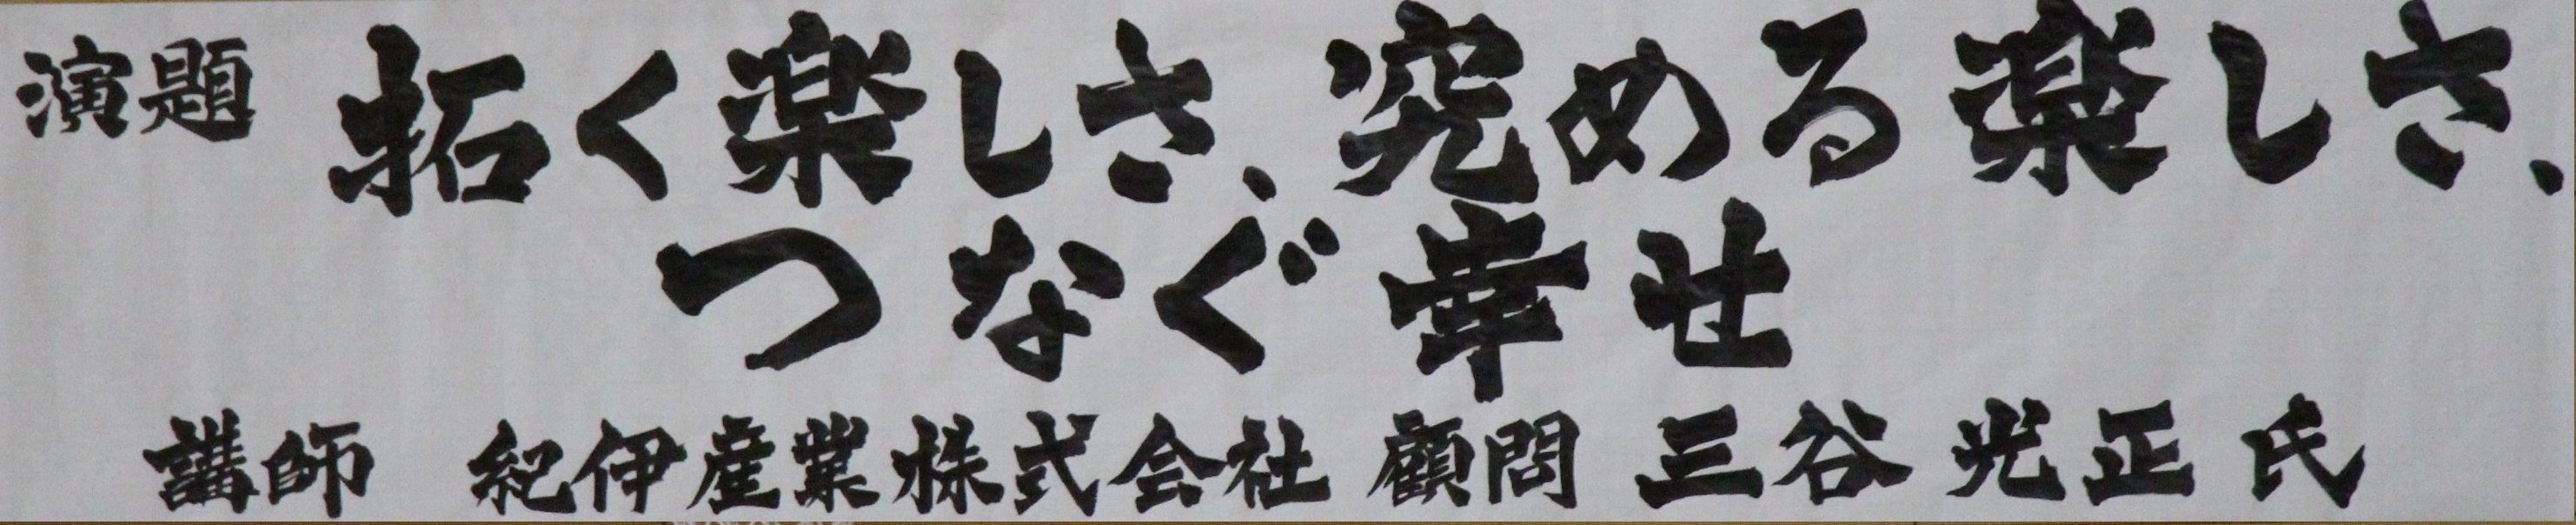 演題 拓く楽しさ、究める楽しさ、
つなぐ幸せ
講師 紀伊産業株式会社 顧問 三谷光正氏